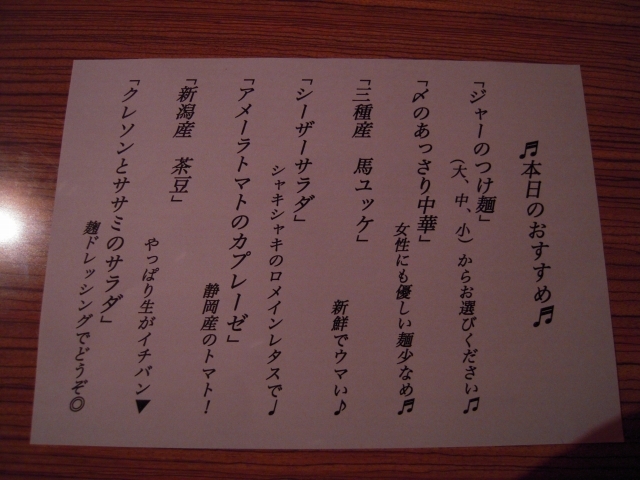 ♬本日のおすすめ♬
「ジャーのつけ麺」
（大、中、小）からお選びください♫
「〆のあっさり中華」
女性にも優しい麺少なめ♬
「三種産　馬ユッケ」
新鮮でウマい♪
「シーザーサラダ」
シャキシャキのロメインレタスで♩
「アメーラトマトのカプレーゼ」
静岡産のトマト！
「新潟産　茶豆」
やっぱり生がイチバン▼
「クレソンとササミのサラダ」
麹ドレッシングでどうぞ◎